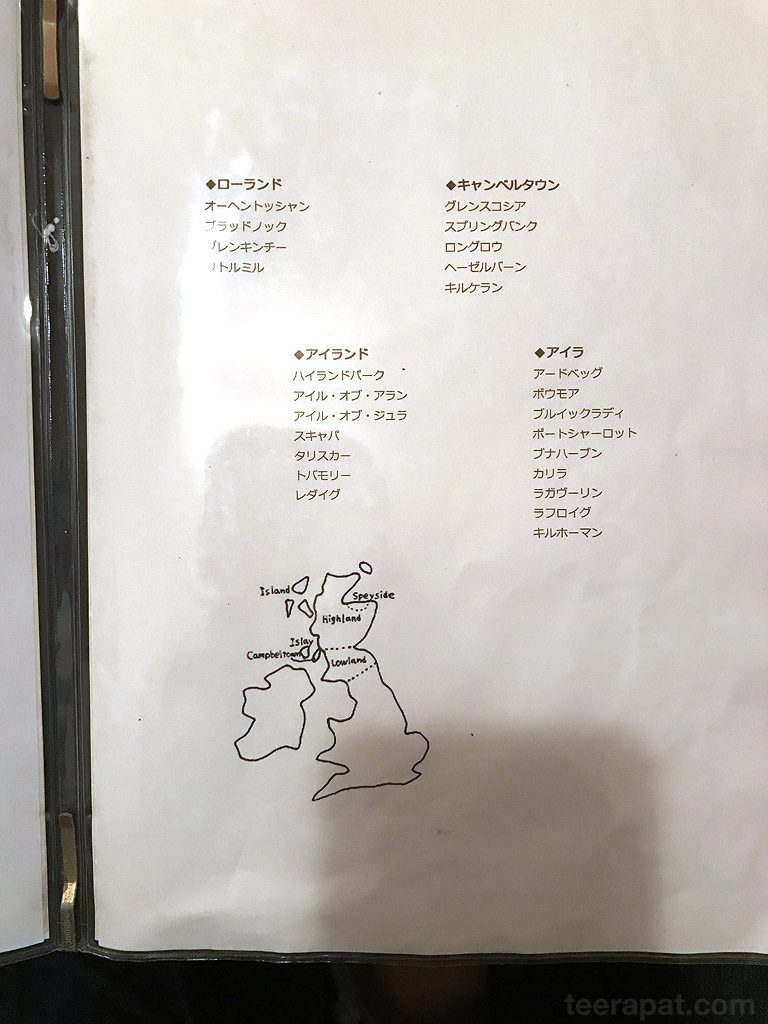 ◆ローランド
オーヘントッシャン
ブラッドノック
グレンキンチー
リトルミル
◆キャンベルタウン
グレンスコシア
スプリングバンク
ロングロウ
ヘーゼルバーン
キルケラン
◆アイランド
ハイランドパーク
アイル・オブ・アラン
アイル・オブ・ジュラ
スキャパ
タリスカー
トバモリー
レダイグ
◆アイラ
アードベッグ
ボウモア
ブルイックラディ
ポートシャーロット
ブナハーブン
カリラ
ラガヴーリン
ラフロイグ
キルホーマン
Island
Speyside
Highland
Islay
Campbeltown
Lowland
teerapat.com